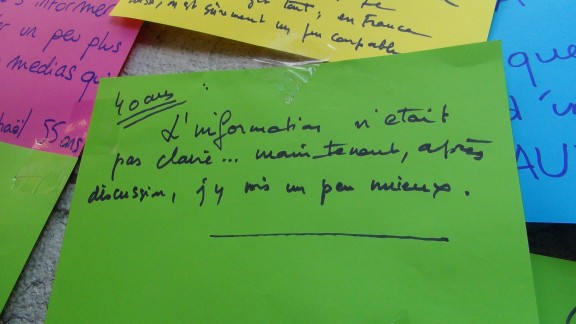 s'informe
r un peu plus
medias qu
haël 55 ans
tout ; en France
est sûrement un peu coupable
40 ans :
L'information n'était
pas claire... maintenant, après
discussion, j'y vois un peu mieux.
que
d'u
AU